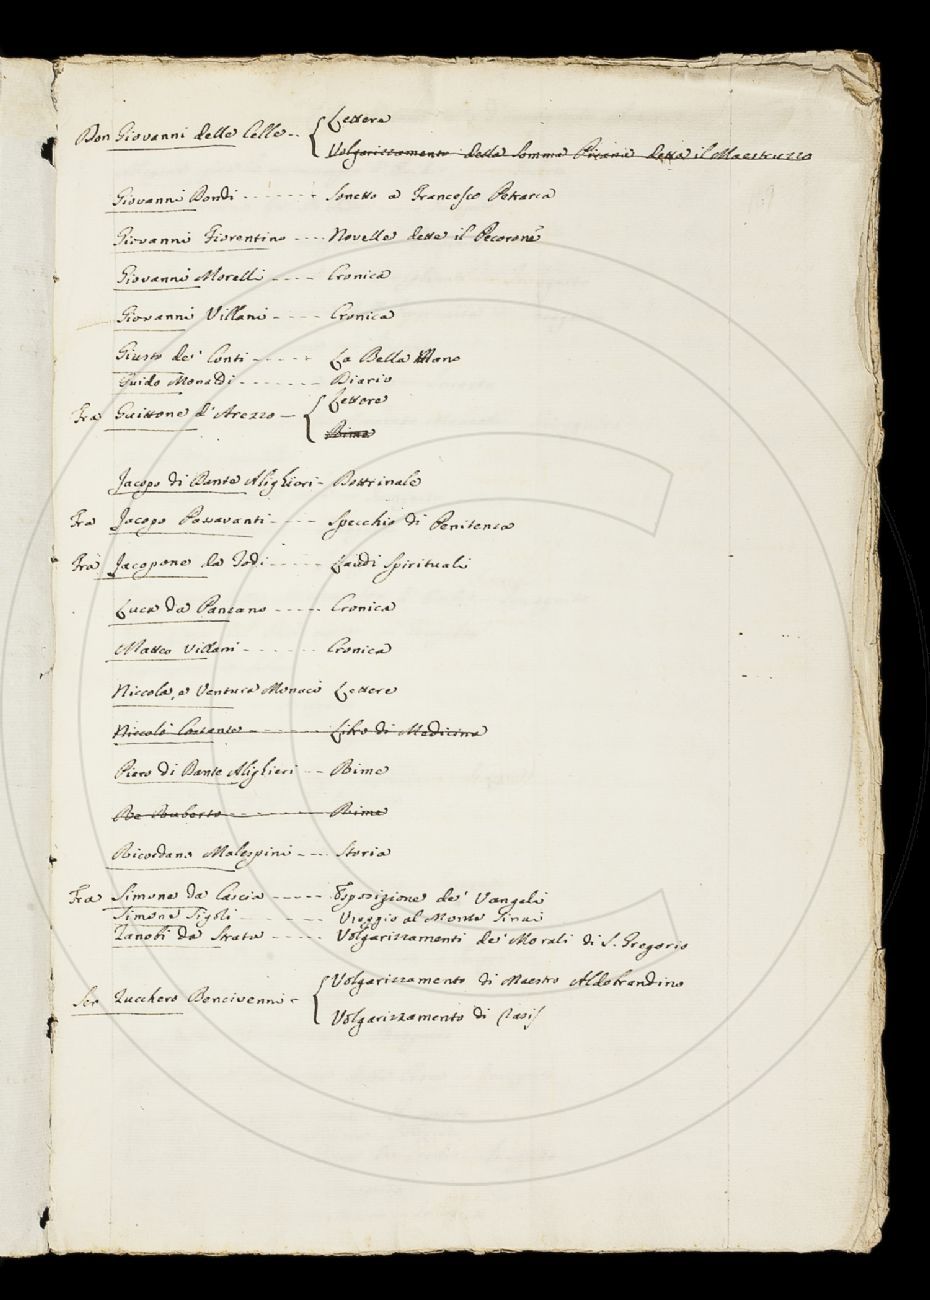 Don Giovanni delle Celle -- { Lettere
Volgarizzamento della Somma Pisana detta il Maestruzzo
Giovanni Dondi ------- Sonetto a Francesco Petrarca
Giovanni Fiorentino ---- Novelle dette il Pecorone
Giovanni Morelli ---- Cronica
Giovanni Villani ---- Cronica
Giusto de' Conti ----- La Bella Mano
Guido Monaldi ------- Diario
Fra Guittone d'Arezzo -- { Lettere
Rime
Jacopo di Dante Alighieri - Dottrinale
Fra Jacopo Passavanti ---- Specchio di Penitenza
Fra Jacopone da Todi ----- Laudi Spirituali
Luca da Panzano ----- Cronica
Matteo Villani ------ Cronica
Niccola, e Ventura Monaci Lettere
Niccolò -------- Libro di Medicina
Piero di Dante Alighieri -- Rime
Re Ruberto -------- Rime
Ricordano Malespini --- Storia
Fra Simone da Cascia ----- Esposizione de' Vangeli
Simone Sigoli ------- Viaggio al Monte Sinai
Zanobi da Strata ----- Volgarizzamenti de' Morali di S. Gregorio
Ser Zucchero Bencivenni - { Volgarizzamento di Maestro Aldobrandino
Volgarizzamento di Rasis